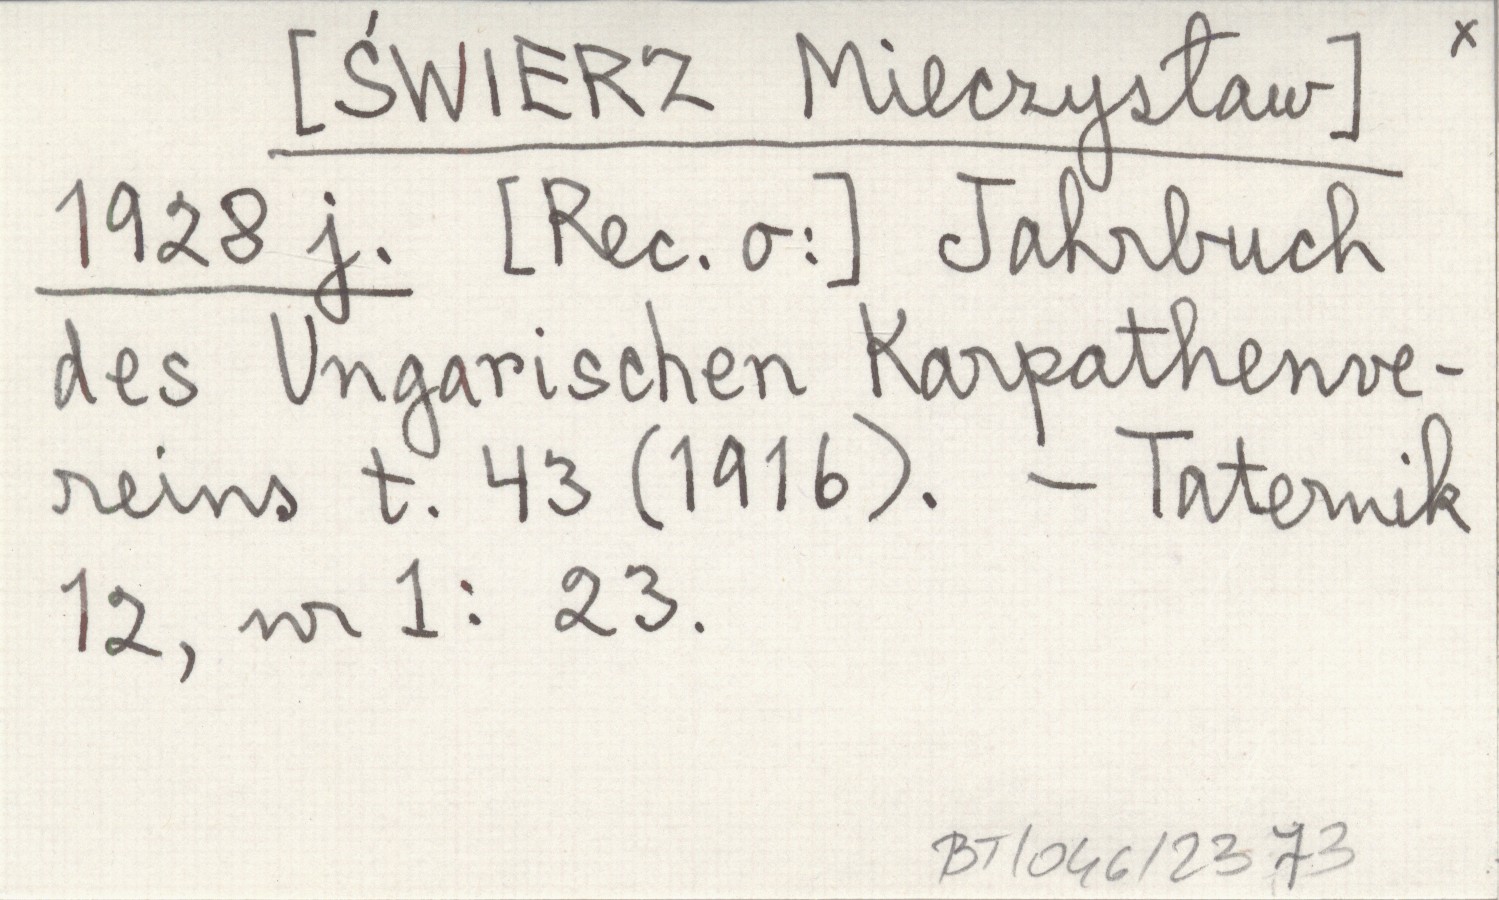 [ŚWIERZ Mieczysław] x
1928 j. [Rec. o:] Jahrbuch
des Ungarischen Karpathenve-
reins t. 43 (1916). – Taternik
12, nr 1: 23.
BT/046/23 73